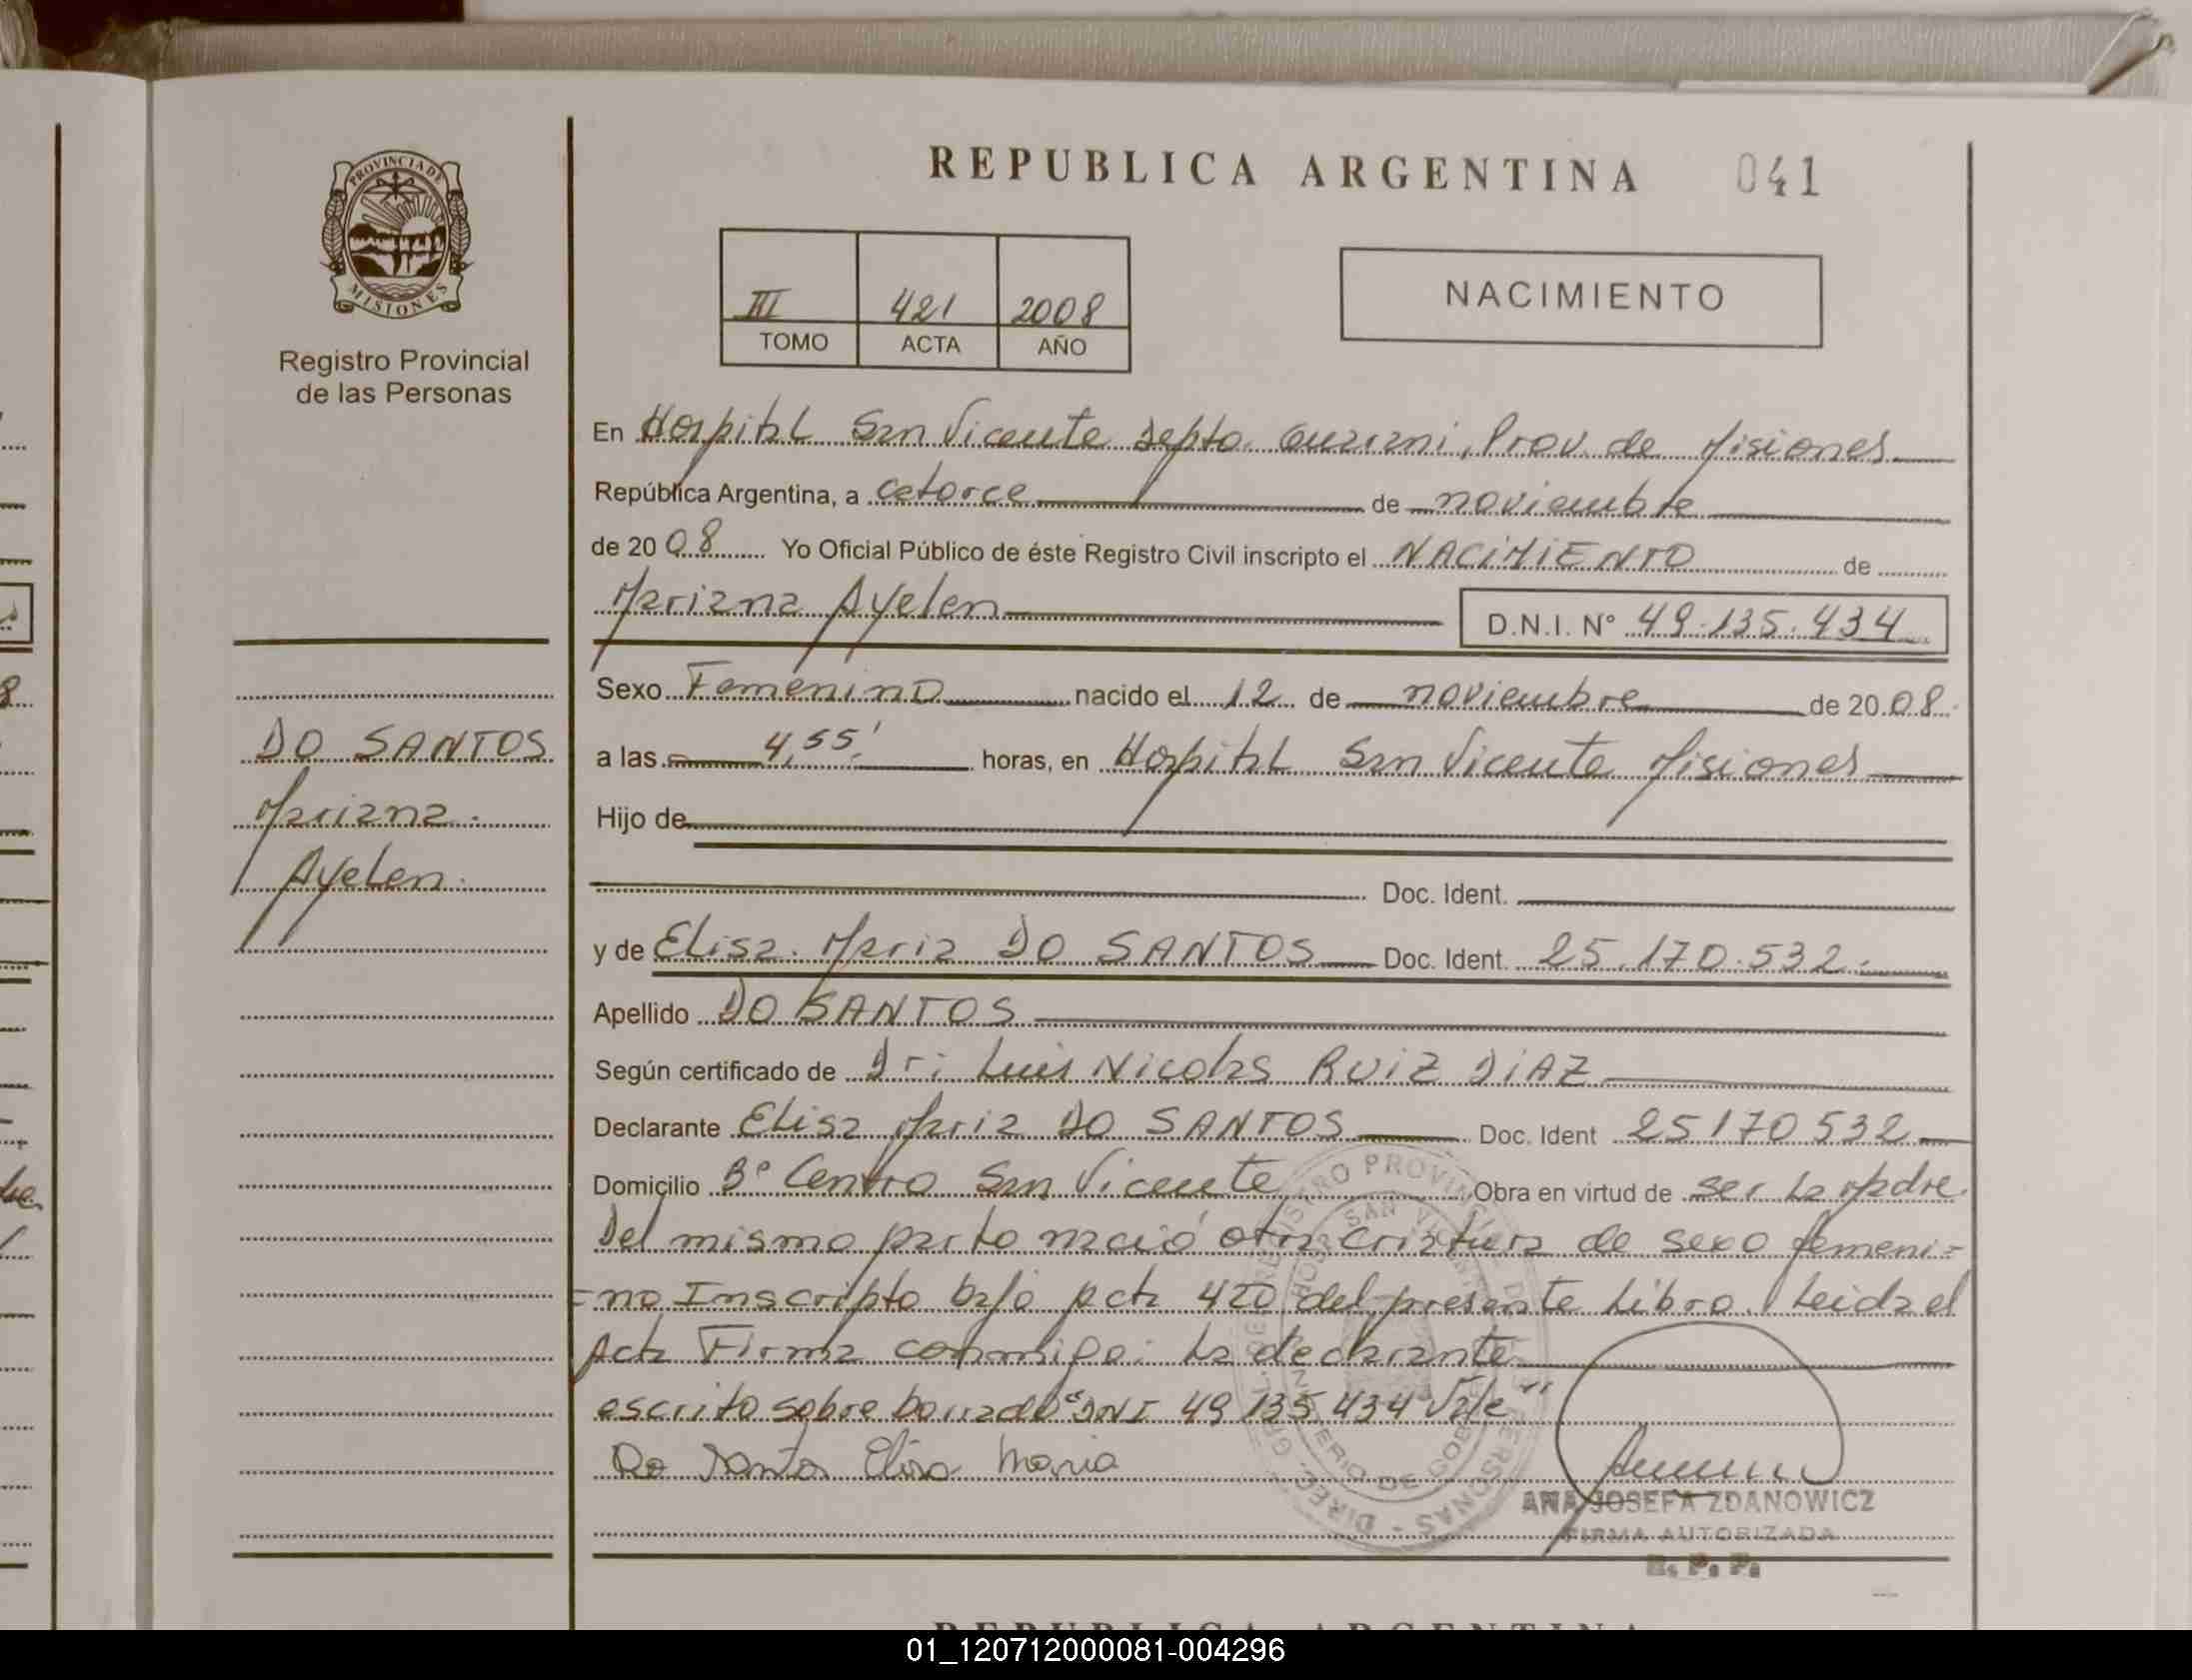 REPUBLICA ARGENTINA 041
PROVINCIA DE
MISIONES
Registro Provincial
de las Personas
III 421 2008
TOMO ACTA AÑO
NACIMIENTO
En Hospital San Vicente Depto. Guarani, Prov. de Misiones
República Argentina, a catorce de noviembre
de 2008 Yo Oficial Público de éste Registro Civil inscripto el NACIMIENTO de
Mariana Ayelen D.N.I. Nº 49.135.434
Sexo Femenino nacido el 12 de noviembre de 2008
a las 4,55' horas, en Hospital San Vicente Misiones
Hijo de
Doc. Ident.
y de Elisa Maria DO SANTOS Doc. Ident. 25.170.532.
Apellido DO SANTOS
Según certificado de Dr: Luis Nicolas RUIZ DIAZ
Declarante Elisa Maria DO SANTOS Doc. Ident 25170532
Domicilio Bº Centro San Vicente Obra en virtud de ser la Madre
Del mismo parto nació otra criatura de sexo femeni=
=no Inscripto bajo Acta 420 del presente Libro. Leida el
Acta Firma conmigo: La declarante
escrito sobre borrado "DNI 49 135 434 Vale"
Do Santos Elisa Maria
ANA JOSEFA ZDANOWICZ
FIRMA AUTORIZADA
R. P. P.
DO SANTOS
Mariana.
Ayelen.
REPUBLICA ARGENTINA
01_120712000081-004296